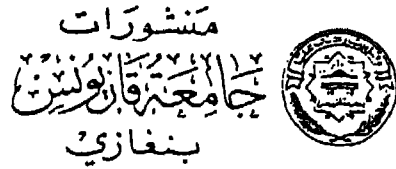 مَنشورَات
جَامِعَة قَاريُونس
بنغازي